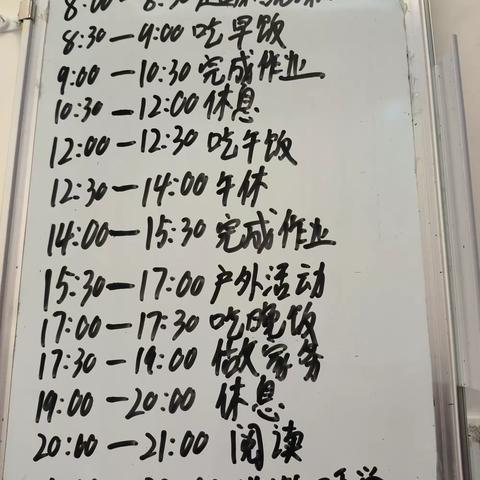 8:00—8:30
8:30—9:00 吃早饭
9:00—10:30 完成作业
10:30—12:00 休息
12:00—12:30 吃午饭
12:30—14:00 午休
14:00—15:30 完成作业
15:30—17:00 户外活动
17:00—17:30 吃晚饭
17:30—19:00 做家务
19:00—20:00 休息
20:00—21:00 阅读